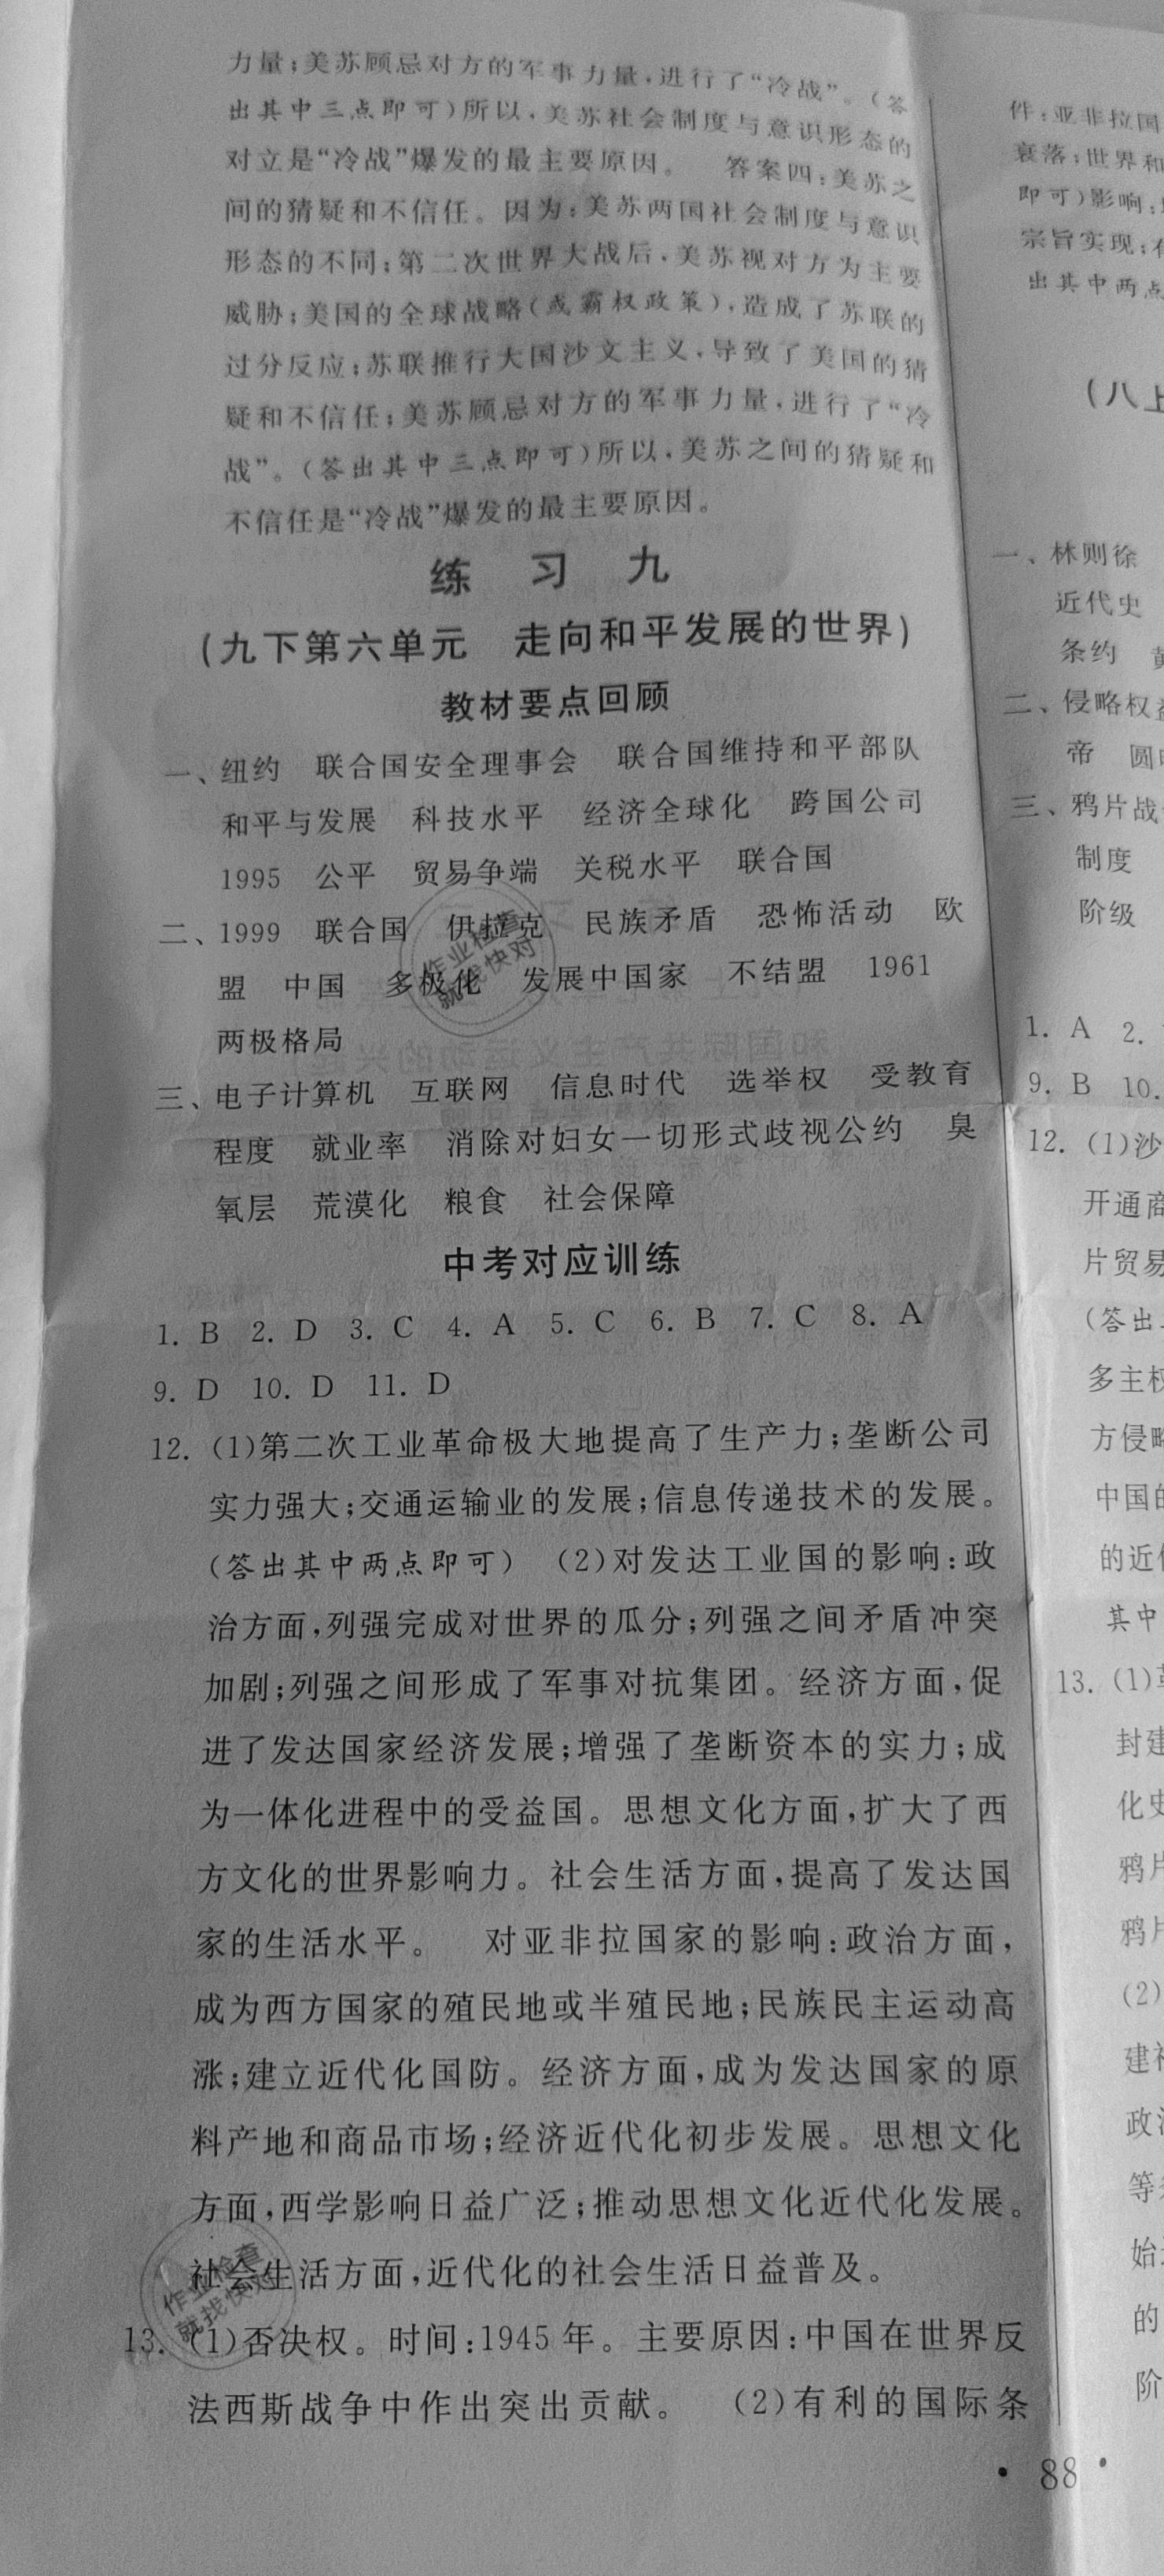 力量;美苏顾忌对方的军事力量,进行了“冷战”。(答
出其中三点即可)所以,美苏社会制度与意识形态的
对立是“冷战”爆发的最主要原因。 答案四:美苏之
间的猜疑和不信任。因为:美苏两国社会制度与意识
形态的不同;第二次世界大战后,美苏视对方为主要
威胁;美国的全球战略(或霸权政策),造成了苏联的
过分反应;苏联推行大国沙文主义,导致了美国的猜
疑和不信任;美苏顾忌对方的军事力量,进行了“冷
战”。(答出其中三点即可)所以,美苏之间的猜疑和
不信任是“冷战”爆发的最主要原因。
练 习 九
(九下第六单元 走向和平发展的世界)
教材要点回顾
一、纽约 联合国安全理事会 联合国维持和平部队
和平与发展 科技水平 经济全球化 跨国公司
1995 公平 贸易争端 关税水平 联合国
二、1999 联合国 伊拉克 民族矛盾 恐怖活动 欧
盟 中国 多极化 发展中国家 不结盟 1961
两极格局
三、电子计算机 互联网 信息时代 选举权 受教育
程度 就业率 消除对妇女一切形式歧视公约 臭
氧层 荒漠化 粮食 社会保障
中考对应训练
1. B 2. D 3. C 4. A 5. C 6. B 7. C 8. A
9. D 10. D 11. D
12. (1)第二次工业革命极大地提高了生产力;垄断公司
实力强大;交通运输业的发展;信息传递技术的发展。
(答出其中两点即可) (2)对发达工业国的影响:政
治方面,列强完成对世界的瓜分;列强之间矛盾冲突
加剧;列强之间形成了军事对抗集团。经济方面,促
进了发达国家经济发展;增强了垄断资本的实力;成
为一体化进程中的受益国。思想文化方面,扩大了西
方文化的世界影响力。社会生活方面,提高了发达国
家的生活水平。 对亚非拉国家的影响:政治方面,
成为西方国家的殖民地或半殖民地;民族民主运动高
涨;建立近代化国防。经济方面,成为发达国家的原
料产地和商品市场;经济近代化初步发展。思想文化
方面,西学影响日益广泛;推动思想文化近代化发展。
社会生活方面,近代化的社会生活日益普及。
13. (1)否决权。时间:1945年。主要原因:中国在世界反
法西斯战争中作出突出贡献。 (2)有利的国际条
作业检查
就找快对
作业检查
就找快对
件;亚非拉国
衰落;世界和
即可)影响:
宗旨实现;
出其中两点
(八上
一、林则徐
近代史
条约
二、侵略权益
帝 圆
三、鸦片战
制度
阶级
1. A 2.
9. B 10.
12. (1)沙
开通商
片贸易
(答出
多主权
方侵略
中国的
的近
其中
13. (1)
封建
化史
鸦片
鸦片
(2)
建
政治
等
始
的
阶
• 88 •